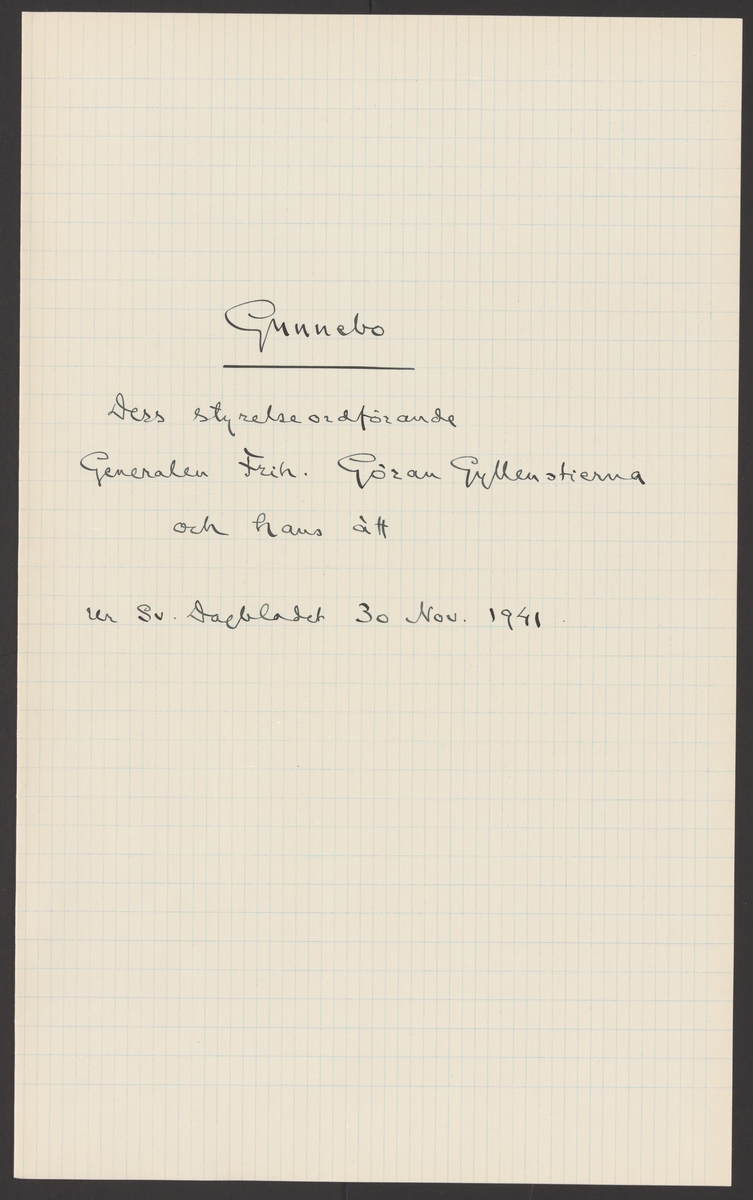 Gunnebo
Dess styrelseordförande
Generalen Frih. Göran Gyllenstierna
och hans ätt
ur Sv. Dagbladet 30 Nov. 1941.